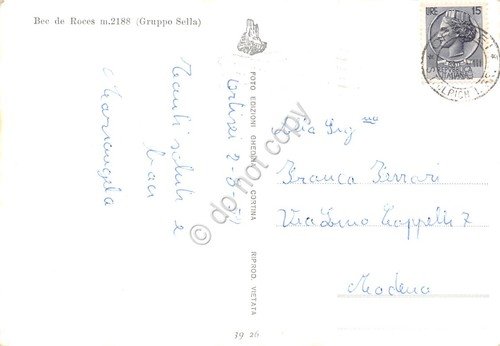 Bec de Roces m.2188 (Gruppo Sella)
LIRE 15
POSTE
REPUBBLICA
ITALIANA
Ortisei 2-8-
Tanti saluti e
baci
Mariangela
FOTO EDIZIONI GHEDINA - CORTINA
RIPROD. VIETATA
Sig.na
Branca Ferrari
Via Lino Cappelli 7
Modena
39 26
do not copy